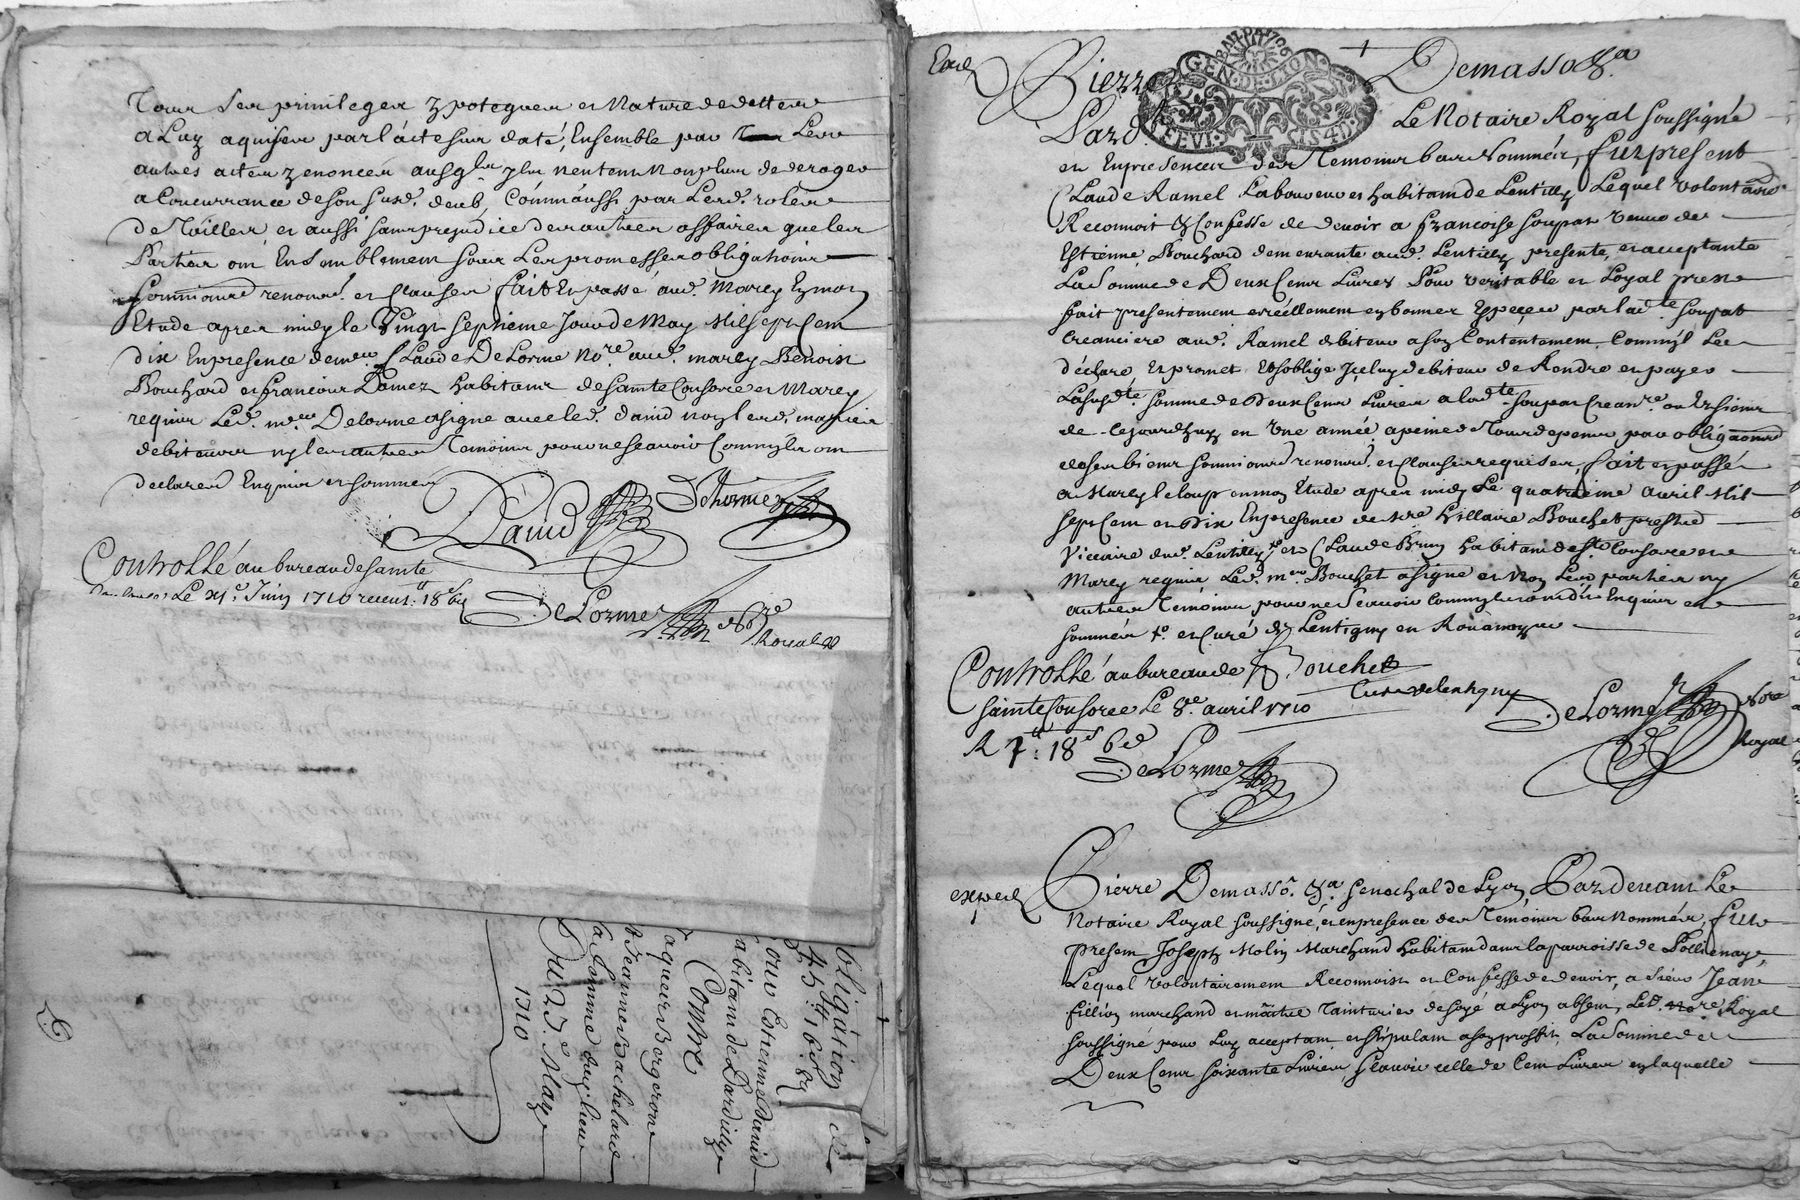 Tous ses privileges ypoteques et Nature de dettes
a Luy aquises par l'acte sus daté, Ensemble par Les
autres actes
a Concurrance de son susd. deub, Comm'aussi par Lesd. roles
de Tailles, et aussi sans prejudice des autres affaires que les
Parties ont Ensemblement sous Les promesses obligations
soumissions renonc. et clauses fait Et passé aud. Marcy Ez mon
Etude apres midy le Vingt septieme Jour de May Mil sept Cent
dix En presence de me. Claude DeLorme No.re aud. marcy Benoist
Bouchard et francois habitans de sainte Consorce et Marcy
requis Led. me. Delorme a signé avec led. david non lesd. mariés
debiteurs ny les autres Temoins pour ne scavoir Comm'ils ont
declaré Enquis et sommés
David DeLorme
Controllé au bureau de sainte
Le xi.e Juin 1710 receu 18s 6d
DeLorme No.re
Royal
obligation de
45lt 16s 8d
Pour Estienne David
habitant de Dardilly
Contre
Jacques Bergeron
et Jeanne Bachelard
sa femme dud. lieu
Du 27.e May
1710
Pierre Demasso &a
GEN. DE LYON
Pard.
Le Notaire Royal soussigné
et En presence des Temoins bas Nommés, fut present
Claude Ramel Laboureur et habitant de Lentilly Lequel Volontaire
Reconnoit & Confesse de devoir a francoise soupat veuve de
Estienne Bouchard demeurante aud. Lentilly presente, et acceptante
La Somme de Deux Cens Livres Pour veritable et Loyal prest
fait presentement et réellement en bonnes Especes par lad.te soupat
Creanciere aud. Ramel debiteur a son Contentement Comm'il Le
déclare Et promet Et s'oblige Iceluy debiteur de Rendre et payer
La susd.te somme de Deux Cens Livres a lad.te soupat Crean.re ou Ez siens
de cejourdhuy en Une année a peine de Tous depens par obligaõns
de ses biens soumissions renonc. et clauses requises, fait et passé
a Marcy le loup en mon Etude apres midy Le quatrieme avril Mil
sept Cens et Dix En presence de M.re hillaire Bouchet prestre
Viccaire dud. Lentilly & et Claude Brun habitans de S.te Consorce et
Marcy requis Led. m.re Bouchet a signé et Non Lesd. parties ny
autres Témoins pour ne Scavoir Comm'ils ont dit Enquis et
sommés &. et curé de Lentigny en Roannoy
Controllé au bureau de Bouchet
sainte Consorce Le 8.e avril 1710 Curé de lentigny
R 7: 18s 6d DeLorme No.re
DeLorme Royal
exped
Pierre Demasso. &a Senechal de Lyon, Pardevant Le
Notaire Royal soussigné, et en presence des Temoins bas Nommés, fut
present Joseph Molin Marchand habitant dans la parroisse de Pollienay,
Lequel volontairement Reconnoist et Confesse de devoir, a sieur Jean
fillion marchand et maitre Tainturier de soye a Lyon absent, Led. no.re Royal
soussigné pour Luy acceptant et stipulant a son proffit, La Somme de
Deux Cens soixante Livres, scavoir celle de Cent Livres en laquelle